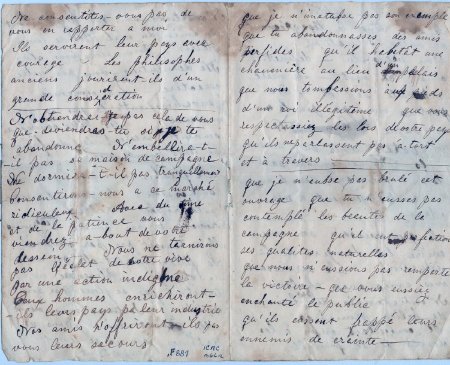 Ne consentites-vous pas de
vous en rapporter a moi
Ils serviront leur pays avec
courage - Les philosophes
anciens jouirent-ils d'un
grande consideration
N'obtiendrai-je pas cela de vous
que deviendras-tu si je te
abandonne N'embellira-t-
il pas sa maison de campagne
Ne dormira-t-il pas tranquillement
consentirons-nous a ce marché
ridicule Avec du
et de la patience vous
viendrez a bout de votre
dessein Nous ne ternirons
pas l'éclat de votre
par une action indigne
hommes enrichiront-
ils leurs pays pa leur industrie
Nos amis n'offriront-ils pas
vous leurs secours
F681
que je n'imitasse pas son exemple
que tu abandonnasses des ames
perfides qu'il habitât une
chaumière au lieu d'un palais
que nous tombassions aux pieds
d'un roi illégitime que vous
respectassiez les lois de votre pay
qu'ils ne parlassent pas a tort
et à travers
que je n'eusse pas brulé cet
ouvrage que tu n'eusses pas
contemplé les beautés de la
campagne qu'il eut
ses qualités naturelles
que nous n'eussions pas remporté
la victoire - que vous eussiez
enchanté le public
qu'ils eussent frappé leurs
ennemis de crainte -